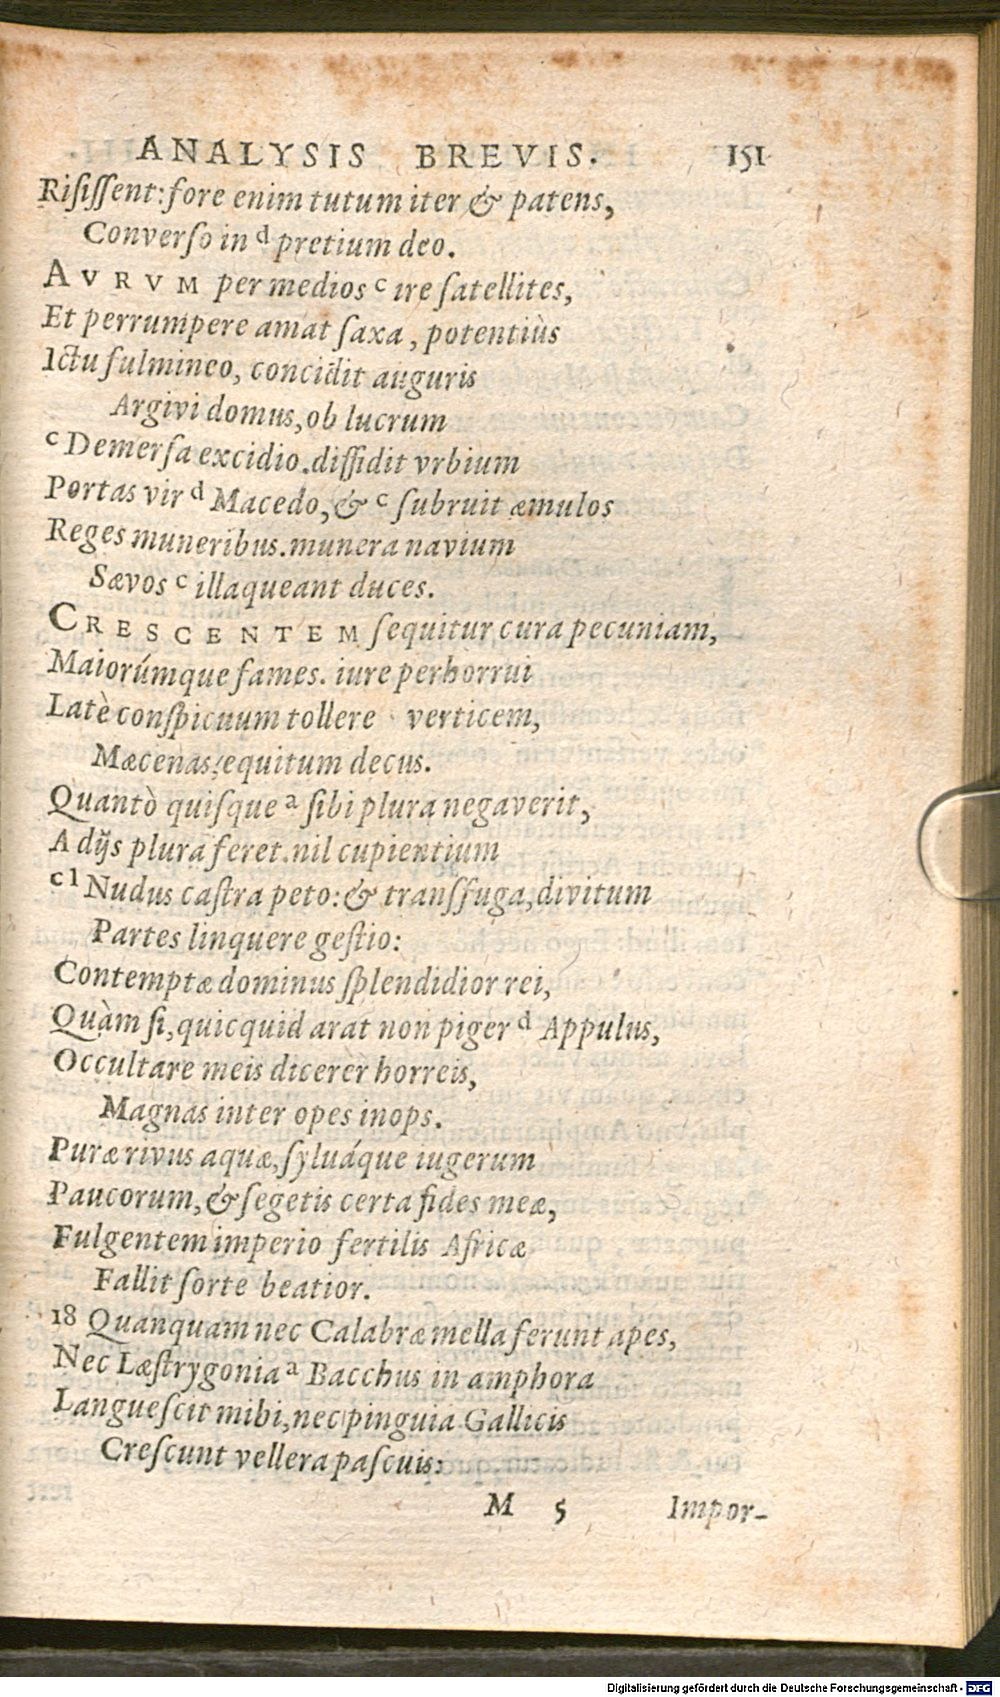 ANALYSIS BREVIS. 151
Risissent: fore enim tutum iter & patens,
Converso in d pretium deo.
AVRVM per medios c ire satellites,
Et perrumpere amat saxa, potentiùs
Ictu fulmineo, concidit auguris
Argivi domus, ob lucrum
c Demersa excidio. diffidit vrbium
Portas vir d Macedo, & c subruit æmulos
Reges muneribus. munera navium
Sævos c illaqueant duces.
CRESCENTEM sequitur cura pecuniam,
Maiorúmque fames. iure perhorrui
Latè conspicuum tollere verticem,
Mæcenas, equitum decus.
Quantò quisque a sibi plura negaverit,
A dijs plura feret. nil cupientium
c1 Nudus castra peto: & transfuga, divitum
Partes linquere gestio:
Contemptæ dominus splendidior rei,
Quàm si, quicquid arat non piger d Appulus,
Occultare meis dicerer horreis,
Magnas inter opes inops.
Puræ rivus aquæ, sylváque iugerum
Paucorum, & segetis certa fides meæ,
Fulgentem imperio fertilis Africæ
Fallit sorte beatior.
18 Quanquam nec Calabræ mella ferunt apes,
Nec Læstrygonia a Bacchus in amphora
Languescit mihi, nec pinguia Gallicis
Crescunt vellera pascuis:
M 5 Impor-
Digitalisierung gefördert durch die Deutsche Forschungsgemeinschaft - DFG